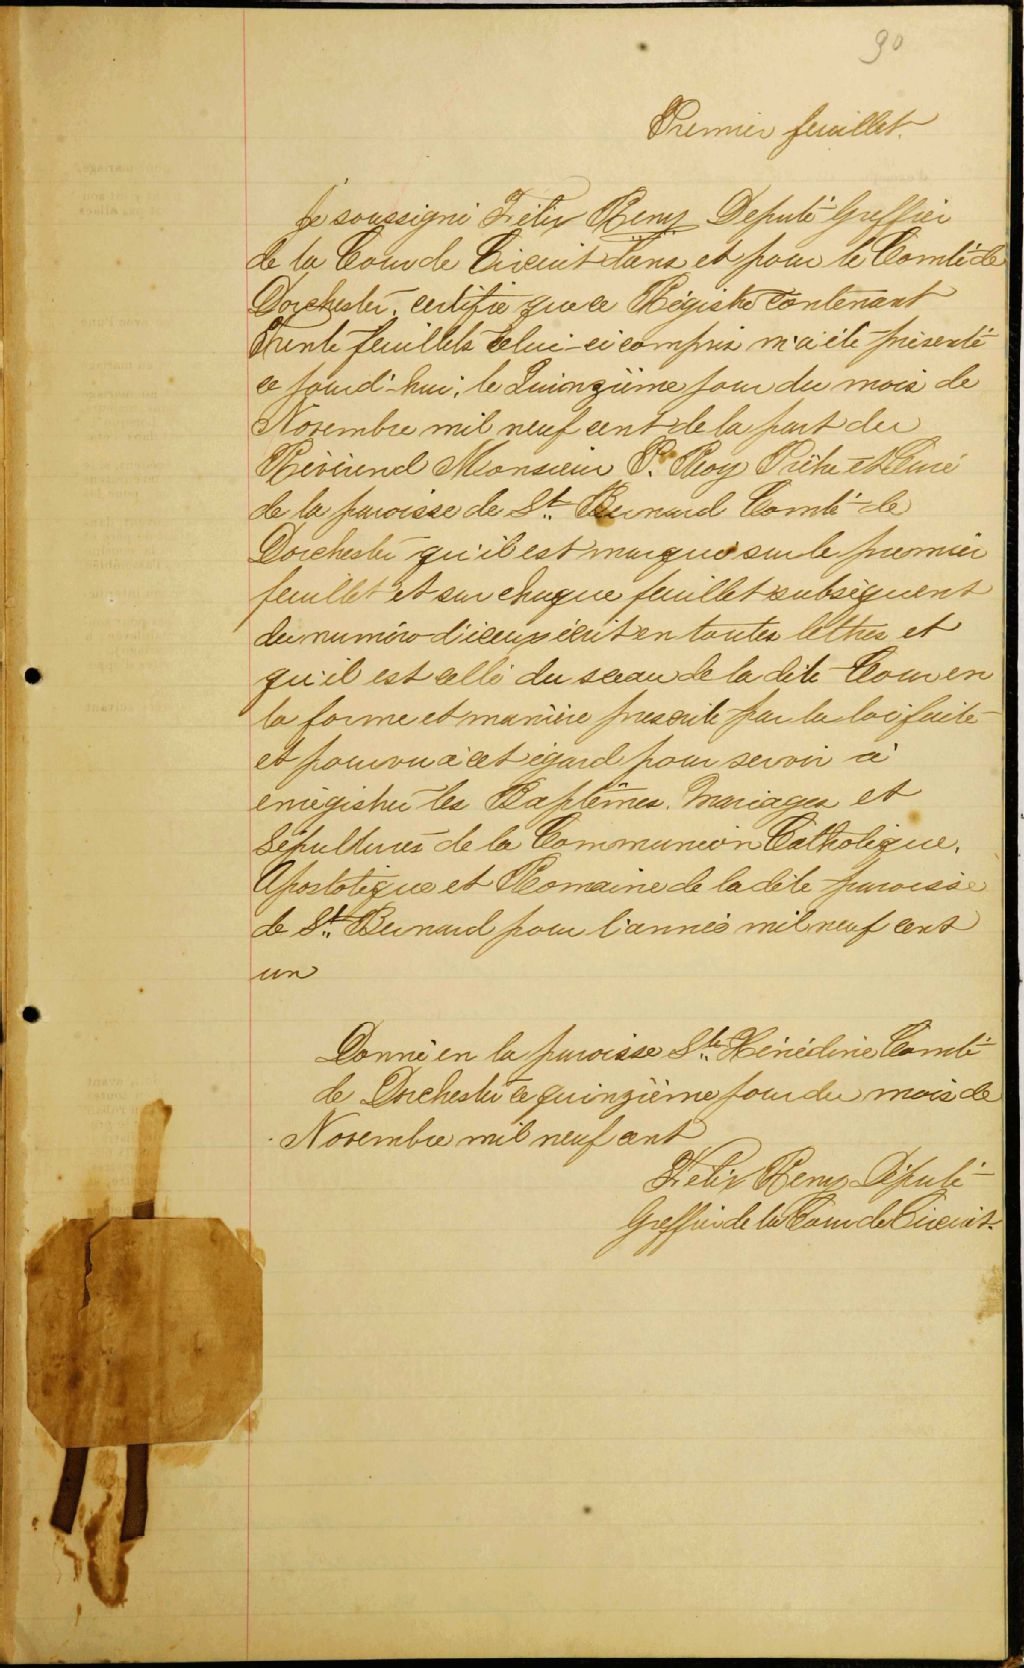 90
Premier feuillet.
Je soussigné Félix Remy Député Greffier
de la Cour de Circuit dans et pour le Comté de
Dorchester, certifie que ce Régistre contenant
Trente feuillets celui-ci compris m'a été présenté
ce jourd'hui, le Quinzième jour du mois de
Novembre mil neuf cent de la part du
Révérend Monsieur P. Roy Prêtre et Curé
de la paroisse de St. Bernard Comté de
Dorchester qu'il est marqué sur le premier
feuillet et sur chaque feuillet subséquent
du numéro d'iceux écrit en toutes lettres et
qu'il est cellé du sceau de la dite Cour en
la forme et manière prescrite par la loi faite
et pourvu à cet égard pour servir à
enrégistrer les Baptêmes, Mariages et
Sépultures de la Communion Catholique,
Apostolique et Romaine de la dite paroisse
de St. Bernard pour l'année mil neuf cent
un
Donné en la paroisse Ste. Hénédine Comté
de Dorchester ce quinzième jour du mois de
Novembre mil neuf cent
Félix Remy Député
Greffier de la Cour de Circuit.